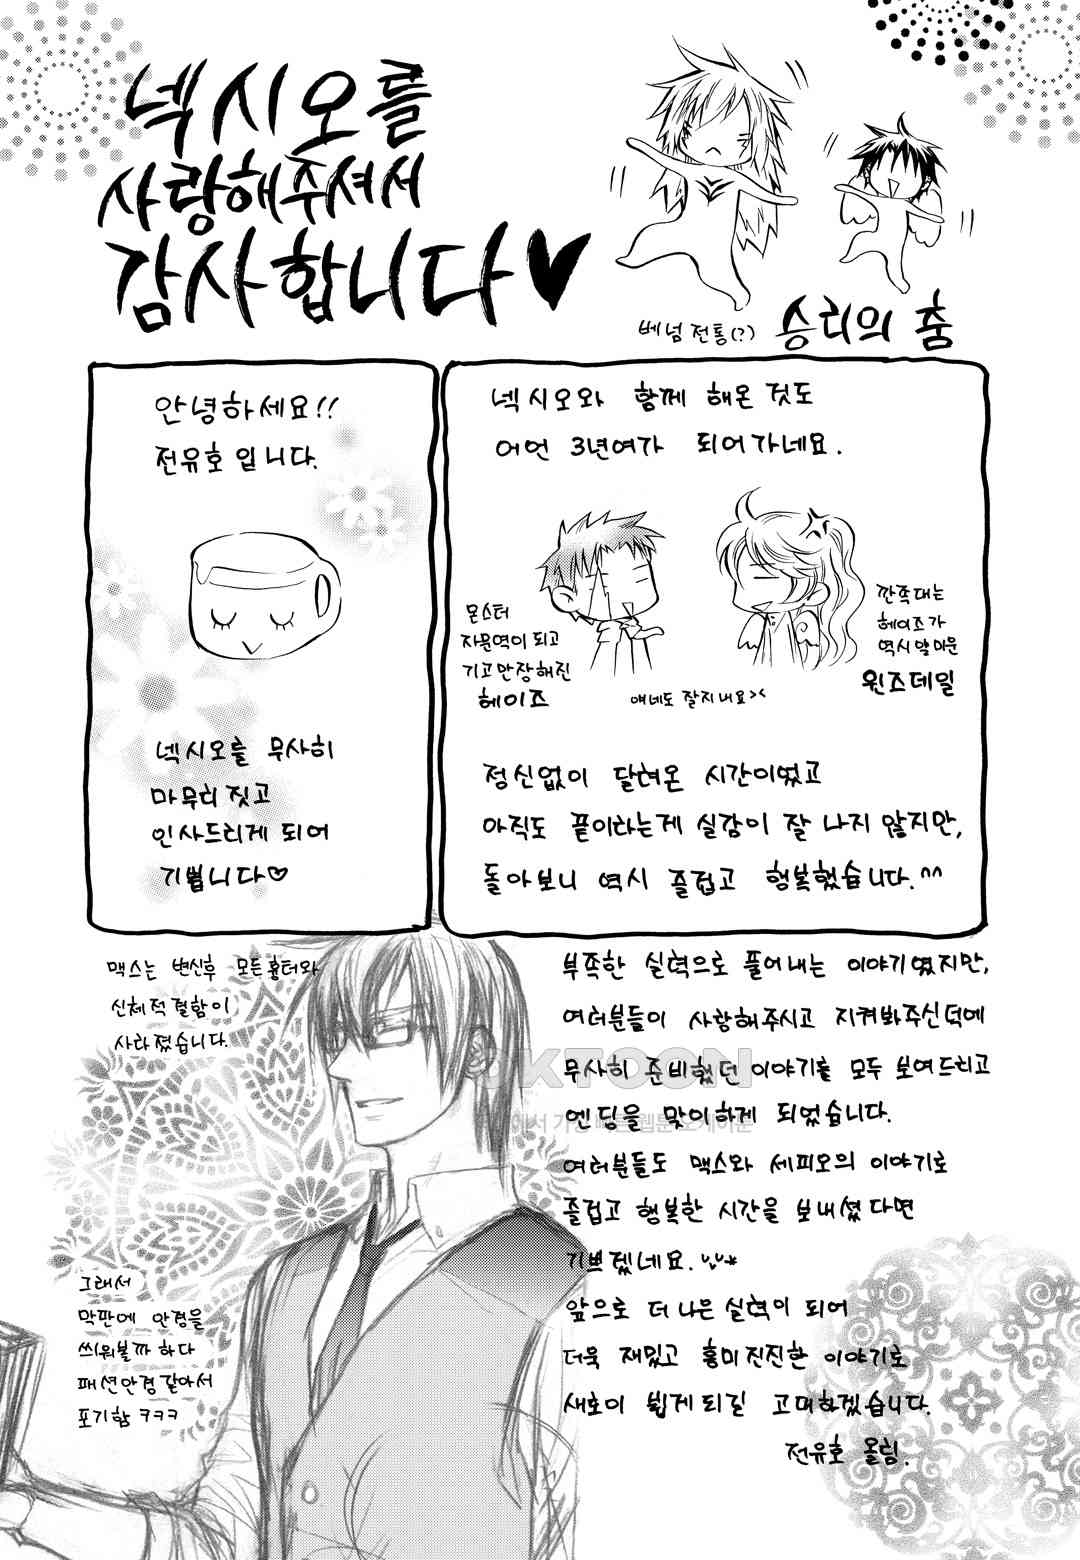 넥시오를
사랑해주셔서
감사합니다♥
베넘 전통(?) 승리의 춤
안녕하세요!!
전유호입니다.
넥시오를 무사히
마무리 짓고
인사드리게 되어
기쁩니다♡
넥시오와 함께 해온 것도
어언 3년여가 되어가네요.
몬스터
자문역이 되고
기고만장해진
헤이즈
얘네도 잘지내요><
깐족대는
헤이즈가
역시 얄미운
윈즈데일
정신없이 달려온 시간이었고
아직도 끝이라는게 실감이 잘 나지 않지만,
돌아보니 역시 즐겁고 행복했습니다.^^
맥스는 변신후 모든 흉터와
신체적결함이
사라졌습니다.
그래서
막판에 안경을
씌워볼까 하다
패션안경같아서
포기함 ㅋㅋㅋ
부족한 실력으로 풀어내는 이야기였지만,
여러분들이 사랑해주시고 지켜봐주신덕에
무사히 준비했던 이야기를 모두 보여드리고
엔딩을 맞이하게 되었습니다.
여러분들도 맥스와 세피오의 이야기로
즐겁고 행복한 시간을 보내셨다면
기쁘겠네요.
앞으로 더 나은 실력이 되어
더욱 재밌고 흥미진진한 이야기로
새로이 뵙게되길 고대하겠습니다.
전유호 올림.
TOON